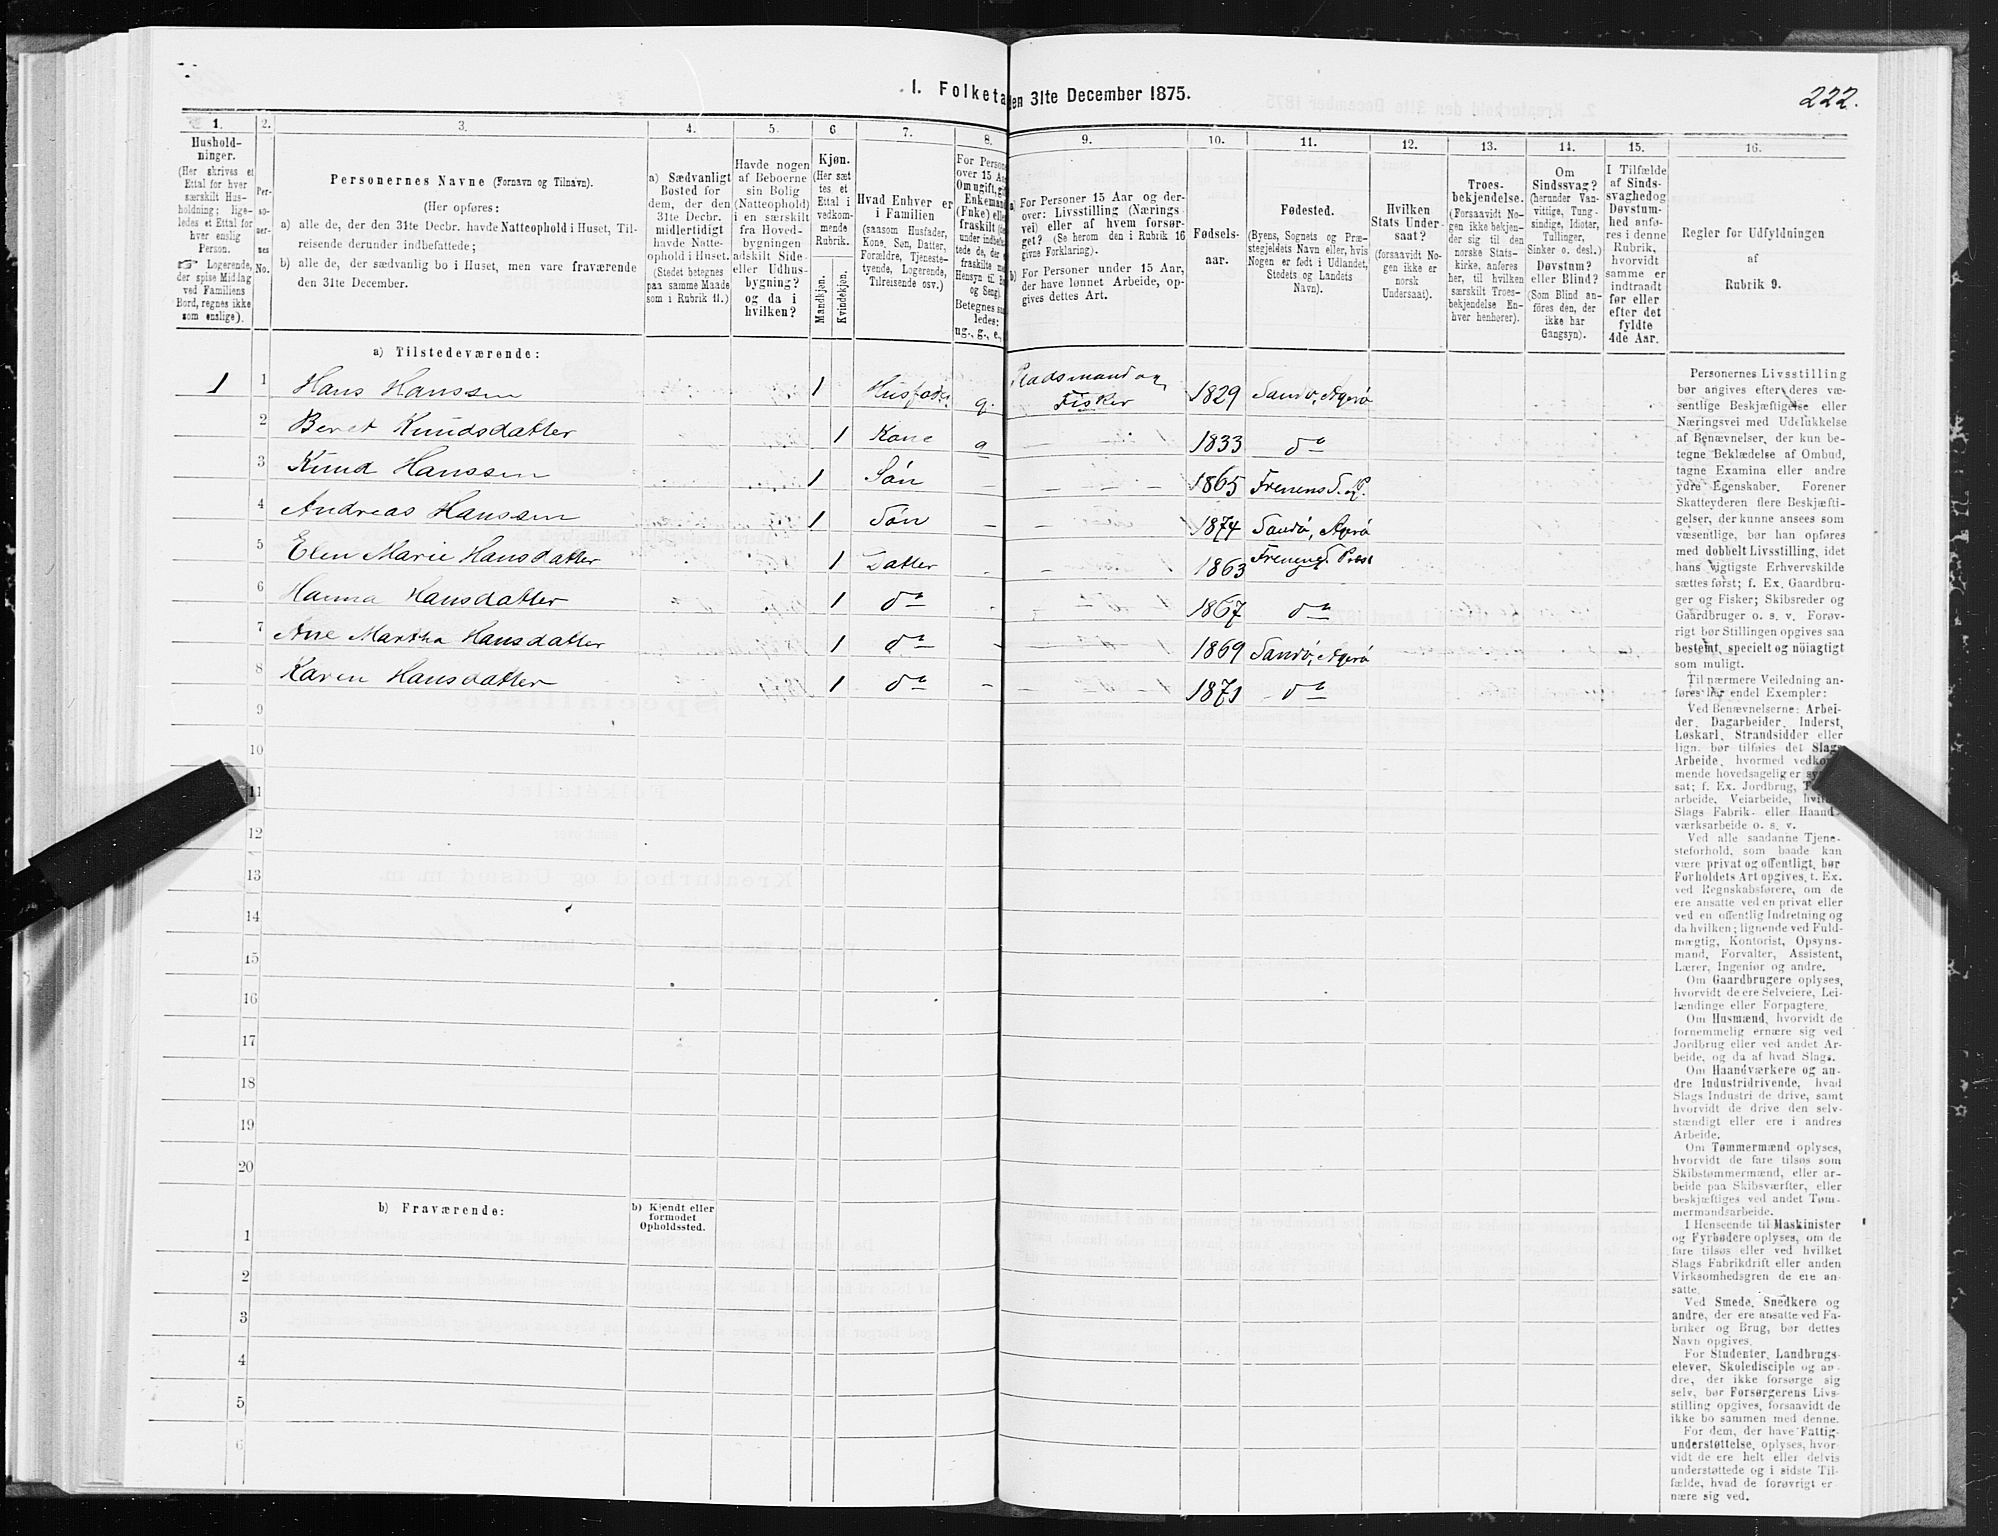 1. Folketa
den 31te December 1875.
222.
1.
Hushold-
ninger.
(Her skrives et
Ettal for hver
særskilt Hus-
holdning; lige-
ledes et Ettal for
hver enslig
Person.
☞ Logerende,
der spise Middag
ved Familiens
Bord, regnes ikke
som enslige).
2.
Per-
so-
ner-
nes
No.
3.
Personernes Navne (Fornavn og Tilnavn).
(Her opføres:
a) alle de, der den 31te Decbr. havde Natteophold i Huset, Til-
reisende derunder indbefattede;
b) alle de, der sædvanlig bo i Huset, men vare fraværende
den 31te December.
4.
a) Sædvanligt
Bosted for
dem, der den
31te Decbr.
midlertidigt
havde Natte-
ophold i Huset.
(Stedet betegnes
paa samme Maade
som i Rubrik 11.)
5.
Havde nogen
af Beboerne
sin Bolig
(Natteophold)
i en særskilt
fra Hoved-
bygningen
adskilt Side-
eller Udhus-
bygning?
og da i
hvilken?
6
Kjøn.
(Her sæt
tes et
Ettal i
vedkom-
mende
Rubrik.
Mandkjøn.
Kvindekjøn.
7.
Hvad Enhver er
i Familien
(saasom Husfader,
Kone, Søn, Datter,
Forældre, Tjeneste-
tyende, Logerende,
Tilreisende osv.)
8.
For Persone
over 15 Aar
Om ugift, gift
Enkemand
(Enke) eller
fraskilt (der-
under indbefat-
tede de, der er
fraskilte med
Hensyn til Bo
og Seng).
Betegnes saa-
ledes:
ug., g., e.,
9.
a) For Personer 15 Aar og der-
over: Livsstilling (Nærings-
vei) eller af hvem forsør-
get? (Se herom den i Rubrik 16
givne Forklaring).
b) For Personer under 15 Aar,
der have lønnet Arbeide, op-
gives dettes Art.
10.
Fødsels-
aar.
11.
Fødested.
(Byens, Sognets og Præ-
stegjeldets Navn eller, hvis
Nogen er født i Udlandet,
Stedets og Landets
Navn).
12.
Hvilken
Stats Under-
saat?
(forsaavidt No-
gen ikke er
norsk
Undersaat).
13.
Troes-
bekjendelse.
(Forsaavidt No-
gen ikke bekjen-
der sig til den
norske Stats-
kirke, anføres
her, til hvilken
særskilt Troes-
bekjendelse En-
hver henhører).
14.
Om
Sindssvag?
(herunder Van-
vittige, Tung-
sindige, Idioter,
Tullinger,
Sinker o. desl.)
Døvstum?
eller Blind?
(Som Blind an-
føres den, der
ikke har
Gangsyn).
15.
I Tilfælde
af Sinds-
svaghedog
Døvstum-
hed anfø-
res i denne
Rubrik,
hvorvidt
samme er
indtraadt
før eller
efter det
fyldte
4de Aar.
16.
Regler for Udfyldningen
af
Rubrik 9.
a) Tilstedeværende:
1 1 Hans Hanssen 1 Husfader g. Pladsmand og Fisker 1829 Sandø, Agerø
2 Beret Knudsdatter 1 Kone g — 1833 do
3 Knud Hanssen 1 Søn — — 1865 Frenens S. og P.
4 Andreas Hanssen 1 Søn — — 1874 Sandø, Agerø
5 Elen Marie Hansdatter 1 Datter — — 1863 Frenens S. Præst
6 Hanna Hansdatter 1 do — — 1867 do
7 Ane Martha Hansdatter 1 do — — 1869 Sandø, Agerø
8 Karen Hansdatter 1 do — — 1871 do
9
10
11
12
13
14
15
16
17
18
19
20
b) Fraværende:
b) Kjendt eller
formodet
Opholdssted.
1
2
3
4
5
6
Personernes Livsstilling
bør angives efter deres væ-
sentlige Beskjæftigelse eller
Næringsvei med Udelukkelse
af Benævnelser, der kun be-
tegne Beklædelse af Ombud,
tagne Examina eller andre
ydre Egenskaber. Forener
Skatteyderen flere Beskjæfti-
gelser, der kunne ansees som
væsentlige, bør han opføres
med dobbelt Livsstilling, idet
hans vigtigste Erhvervskilde
sættes først; f. Ex. Gaardbru-
ger og Fisker; Skibsreder og
Gaardbruger o. s. v. Forøv-
rigt bør Stillingen opgives saa
bestemt, specielt og nøiagtigt
som muligt.
Til nærmere Veiledning an-
føres her endel Exempler:
Ved Benævnelserne: Arbei-
der, Dagarbeider, Inderst,
Løskarl, Strandsidder eller
lign. bør tilføies det Slags
Arbeide, hvormed vedkom-
mende hovedsagelig er syssel-
sat; f. Ex. Jordbrug, Tomt-
arbeide, Veiarbeide, hvilket
Slags Fabrik- eller Haand-
værksarbeide o. s. v.
Ved alle saadanne Tjene-
steforhold, som baade kan
være privat og offentligt, bør
Forholdets Art opgives, t. Ex.
ved Regnskabsførere, om de
ere ansatte ved en privat eller
ved en offentlig Indretning og
da hvilken; lignende ved Fuld-
mægtig, Kontorist, Opsyns-
mand, Forvalter, Assistent,
Lærer, Ingeniør og andre.
Om Gaardbrugere oplyses,
hvorvidt de ere Selveiere, Lei-
lændinge eller Forpagtere.
Om Husmænd, hvorvidt de
fornemmelig ernære sig ved
Jordbrug eller ved andet Ar-
beide, og da af hvad Slags.
Om Haandværkere og an-
dre Industridrivende, hvad
Slags Industri de drive, samt
hvorvidt de drive den selv-
stændigt eller ere i andres
Arbeide.
Om Tømmermænd oplyses,
hvorvidt de fare tilsøs som
Skibstømmermænd, eller ar-
beide paa Skibsværfter, eller
beskjæftiges ved andet Tøm-
mermandsarbeide.
I Henseende til Maskinister
og Fyrbødere oplyses, om de
fare tilsøs eller ved hvilket
Slags Fabrikdrift eller anden
Virksomhedsgren de ere an-
satte.
Ved Smede, Snedkere og
andre, der ere ansatte ved Fa-
briker og Brug, bør dettes
Navn opgives.
For Studenter, Landbrugs-
elever, Skoledisciple og an-
dre, der ikke forsørge sig
selv, bør Forsørgerens Livs-
stilling opgives, forsaavidt de
ikke bo sammen med denne.
For dem, der have Fattig-
understøttelse, oplyses, hvor-
vidt de ere helt eller delvis
understøttede og i sidste Til-
fælde, hvad de forøvrigt er-
nære sig ved.